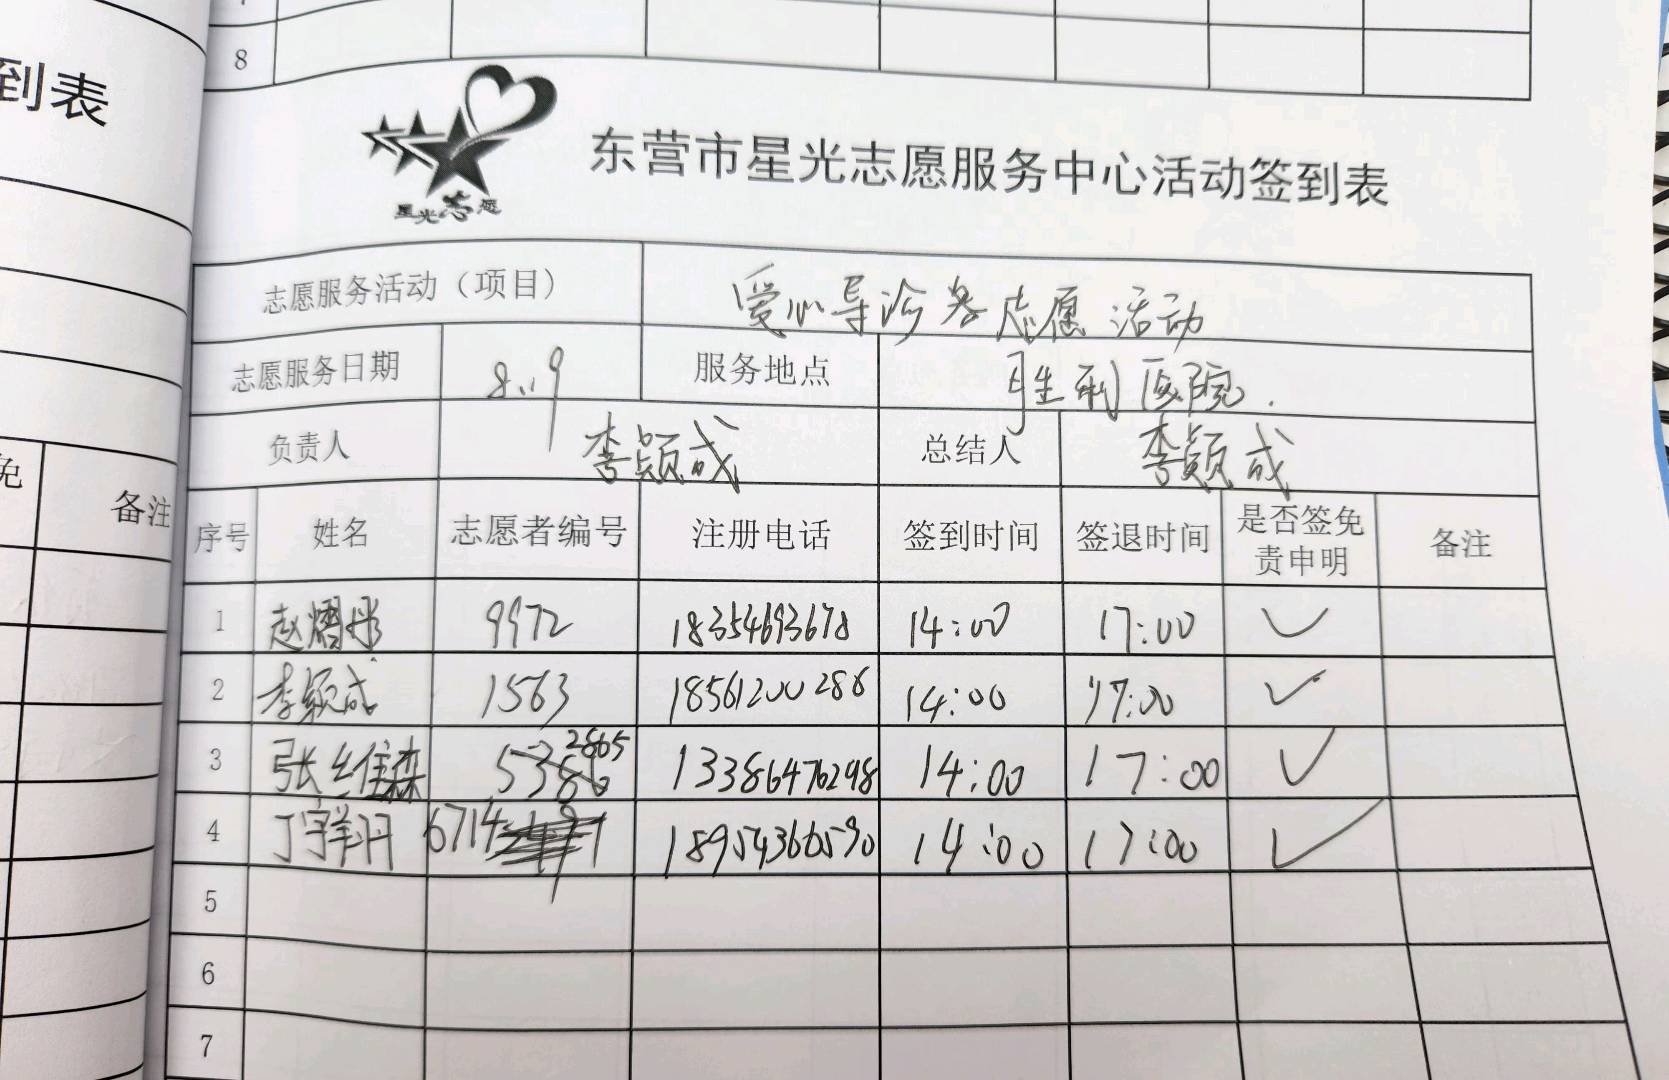 到表
免
备注
8
星光志愿
东营市星光志愿服务中心活动签到表
志愿服务活动（项目） 爱心导诊暑志愿活动
志愿服务日期 8.19 服务地点 胜利医院.
负责人 李颖成 总结人 李颖成
序号 姓名 志愿者编号 注册电话 签到时间 签退时间 是否签免责申明 备注
1 赵熠彤 9972 18354693678 14:00 17:00 ✓
2 李颖成 1563 18561200286 14:00 17:00 ✓
3 张维森 2865 13386476298 14:00 17:00 ✓
4 丁宇翔 6714 18954366590 14:00 17:00 ✓
5
6
7